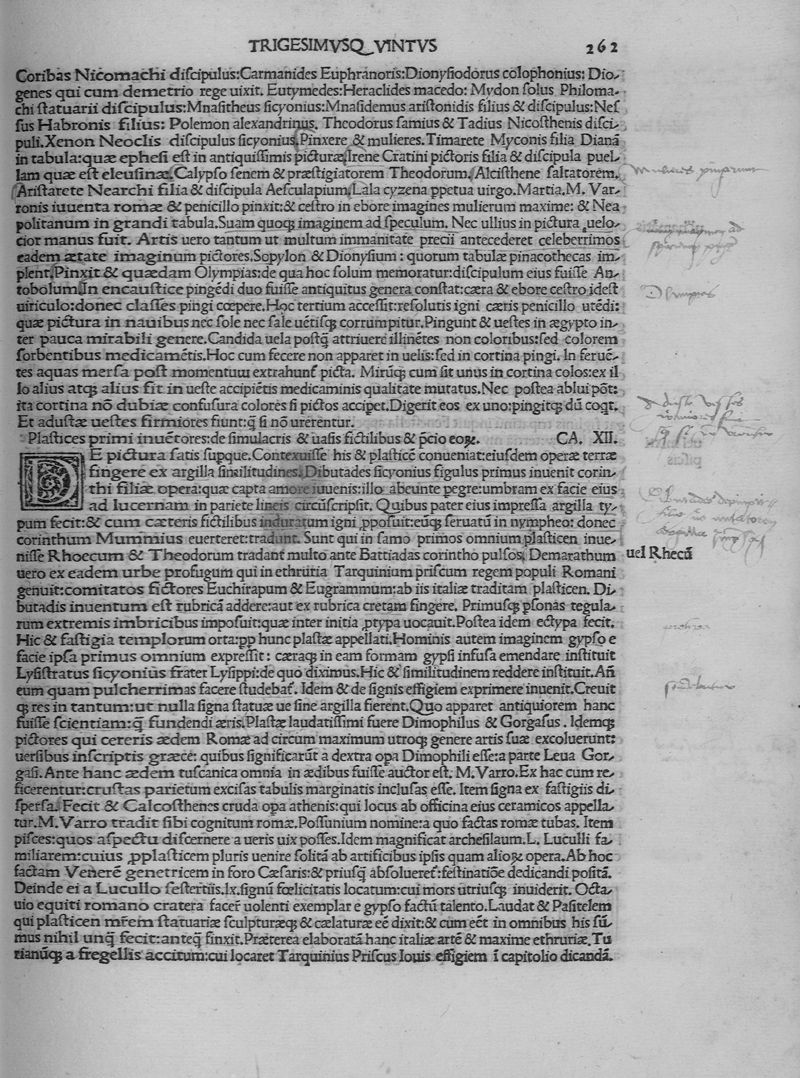 TRIGESIMVSQVINTVS 262
Coribas Nicomachi diſcipulus:Carmanides Euphranoris:Dionyſiodorus colophonius: Dio-
genes qui cum demetrio rege uixit. Eutymedes:Heraclides macedo: Mydon ſolus Philoma-
chi ſtatuarii diſcipulus:Mnaſitheus ſicyonius:Mnaſidemus ariſtonidis filius & diſcipulus:Neſ
ſus Habronis filius: Polemon alexandrinus. Theodorus ſamius & Tadius Nicoſthenis diſci-
puli.Xenon Neoclis diſcipulus ſicyonius.Pinxere & mulieres.Timarete Myconis filia Dianā
in tabula:quæ epheſi eſt in antiquiſſimis picturæ.Irene Cratini pictoris filia & diſcipula puel-
lam quæ eſt eleuſinæ.Calypſo ſenem & præſtigiatorem Theodorum.Alciſthene ſaltatorem.
Ariſtarete Nearchi filia & diſcipula Aeſculapium.Lala cyzena ppetua uirgo.Martia.M. Var-
ronis iuuenta romæ & penicillo pinxit:& ceſtro in ebore imagines mulierum maxime: & Nea
politanum in grandi tabula.Suam quoqꝫ imaginem ad ſpeculum. Nec ullius in pictura uelo-
cior manus fuit. Artis uero tantum ut multum immanitate precii antecederet celeberrimos
eadem ætate imaginum pictores.Sopylon & Dionyſium : quorum tabulæ pinacothecas im-
plent.Pinxit & quædam Olympias:de qua hoc ſolum memoratur:diſcipulum eius fuiſſe An-
tobolum.In encauſtice pingēdi duo fuiſſe antiquitus genera conſtat:cæra & ebore ceſtro ideſt
uiriculo:donec claſſes pingi cœpere.Hoc tertium acceſſit:reſolutis igni cæris penicillo utēdi:
quæ pictura in nauibus nec ſole nec ſale uētiſqꝫ corrumpitur.Pingunt & ueſtes in ægypto in-
ter pauca mirabili genere.Candida uela poſtꝙ̄ attriuere illinētes non coloribus:ſed colorem
ſorbentibus medicamētis.Hoc cum fecere non apparet in uelis:ſed in cortina pingi. In feruē-
tes aquas merſa poſt momentum extrahunt̄ picta. Mirūqꝫ cum ſit unus in cortina colos:ex il
lo alius atqꝫ alius fit in ueſte accipiētis medicaminis qualitate mutatus.Nec poſtea ablui pōt:
ita cortina nō dubiæ confuſura colores ſi pictos accipet.Digerit eos ex uno:pingitqꝫ dū coqt.
Et aduſtæ ueſtes firmiores fiunt:q̄ ſi nō urerentur.
Plaſtices primi inuētores:de ſimulacris & uaſis fictilibus & p̄cio eoꝝ. CA. XII.
DE pictura ſatis ſupque.Contexuiſſe his & plaſticē conueniat:eiuſdem operæ terræ
fingere ex argilla ſimilitudines.Dibutades ſicyonius figulus primus inuenit corin-
thi filiæ opera:quæ capta amore iuuenis:illo abeunte pegre:umbram ex facie eius
ad lucernam in pariete lineis circūſcripſit. Quibus pater eius impreſſa argilla ty-
pum fecit:& cum cæteris fictilibus induratum igni ꝓpoſuit:eūqꝫ ſeruatū in nympheo: donec
corinthum Mummius euerteret:tradunt. Sunt qui in ſamo primos omnium plaſticen inue-
niſſe Rhoecum & Theodorum tradant multo ante Battiadas corintho pulſos. Demarathum
uel Rhecū
uero ex eadem urbe profugum qui in ethruria Tarquinium priſcum regem populi Romani
genuit:comitatos fictores Euchirapum & Eugrammum:ab iis italiæ traditam plaſticen. Di-
butadis inuentum eſt rubricā addere:aut ex rubrica cretam fingere. Primuſqꝫ pſonas tegula-
rum extremis imbricibus impoſuit:quæ inter initia ꝓtypa uocauit.Poſtea idem ectypa fecit.
Hic & faſtigia templorum orta:pp hunc plaſtæ appellati.Hominis autem imaginem gypſo e
facie ipſa primus omnium expreſſit: cæraqꝫ in eam formam gypſi infuſa emendare inſtituit
Lyſiſtratus ſicyonius frater Lyſippi:de quo diximus.Hic & ſimilitudinem reddere inſtituit.Añ
eum quam pulcherrimas facere ſtudebat̄. Idem & de ſignis effigiem exprimere inuenit.Creuit
qꝫ res in tantum:ut nulla ſigna ſtatuæ ue ſine argilla fierent.Quo apparet antiquiorem hanc
fuiſſe ſcientiam:q̄ fundendi æris.Plaſtæ laudatiſſimi fuere Dimophilus & Gorgaſus . Idemqꝫ
pictores qui cereris ædem Romæ ad circum maximum utroqꝫ genere artis ſuæ excoluerunt:
uerſibus inſcriptis græce: quibus ſignificarūt a dextra opa Dimophili eſſe:a parte Leua Gor-
gaſi.Ante hanc ædem tuſcanica omnia in ædibus fuiſſe auctor eſt. M.Varro.Ex hac cum re-
ficerentur:cruſtas parietum exciſas tabulis marginatis incluſas eſſe. Item ſigna ex faſtigiis di-
ſperſa. Fecit & Calcoſthenes cruda opa athenis:qui locus ab officina eius ceramicos appella-
tur.M.Varro tradit ſibi cognitum romæ.Poſſunium nomine:a quo factas romæ tubas. Item
piſces:quos aſpectu diſcernere a ueris uix poſſes.Idem magnificat archeſilaum.L. Luculli fa-
miliarem:cuius ꝓplaſticem pluris uenire ſolitā ab artificibus ipſis quam alioꝝ opera.Ab hoc
factam Venerē genetricem in foro Cæſaris:& priuſq̄ abſolueret̄:feſtinatiōe dedicandi poſitā.
Deinde ei a Lucullo ſeſtertiis.lx.ſignū fœlicitatis locatum:cui mors utriuſqꝫ inuiderit. Octa-
uio equiti romano cratera facer̄ uolenti exemplar e gypſo factū talento.Laudat & Paſitelem
qui plaſticen mr̄em ſtatuariæ ſculpturæqꝫ & cælaturæ eē dixit:& cum eēt in omnibus his ſū-
mus nihil unq̄ fecit:anteq̄ finxit.Præterea elaboratā hanc italiæ artē & maxime ethruriæ.Tu
rianūqꝫ a fregellis accitum:cui locaret Tarquinius Priſcus Iouis effigiem ī capitolio dicandā.